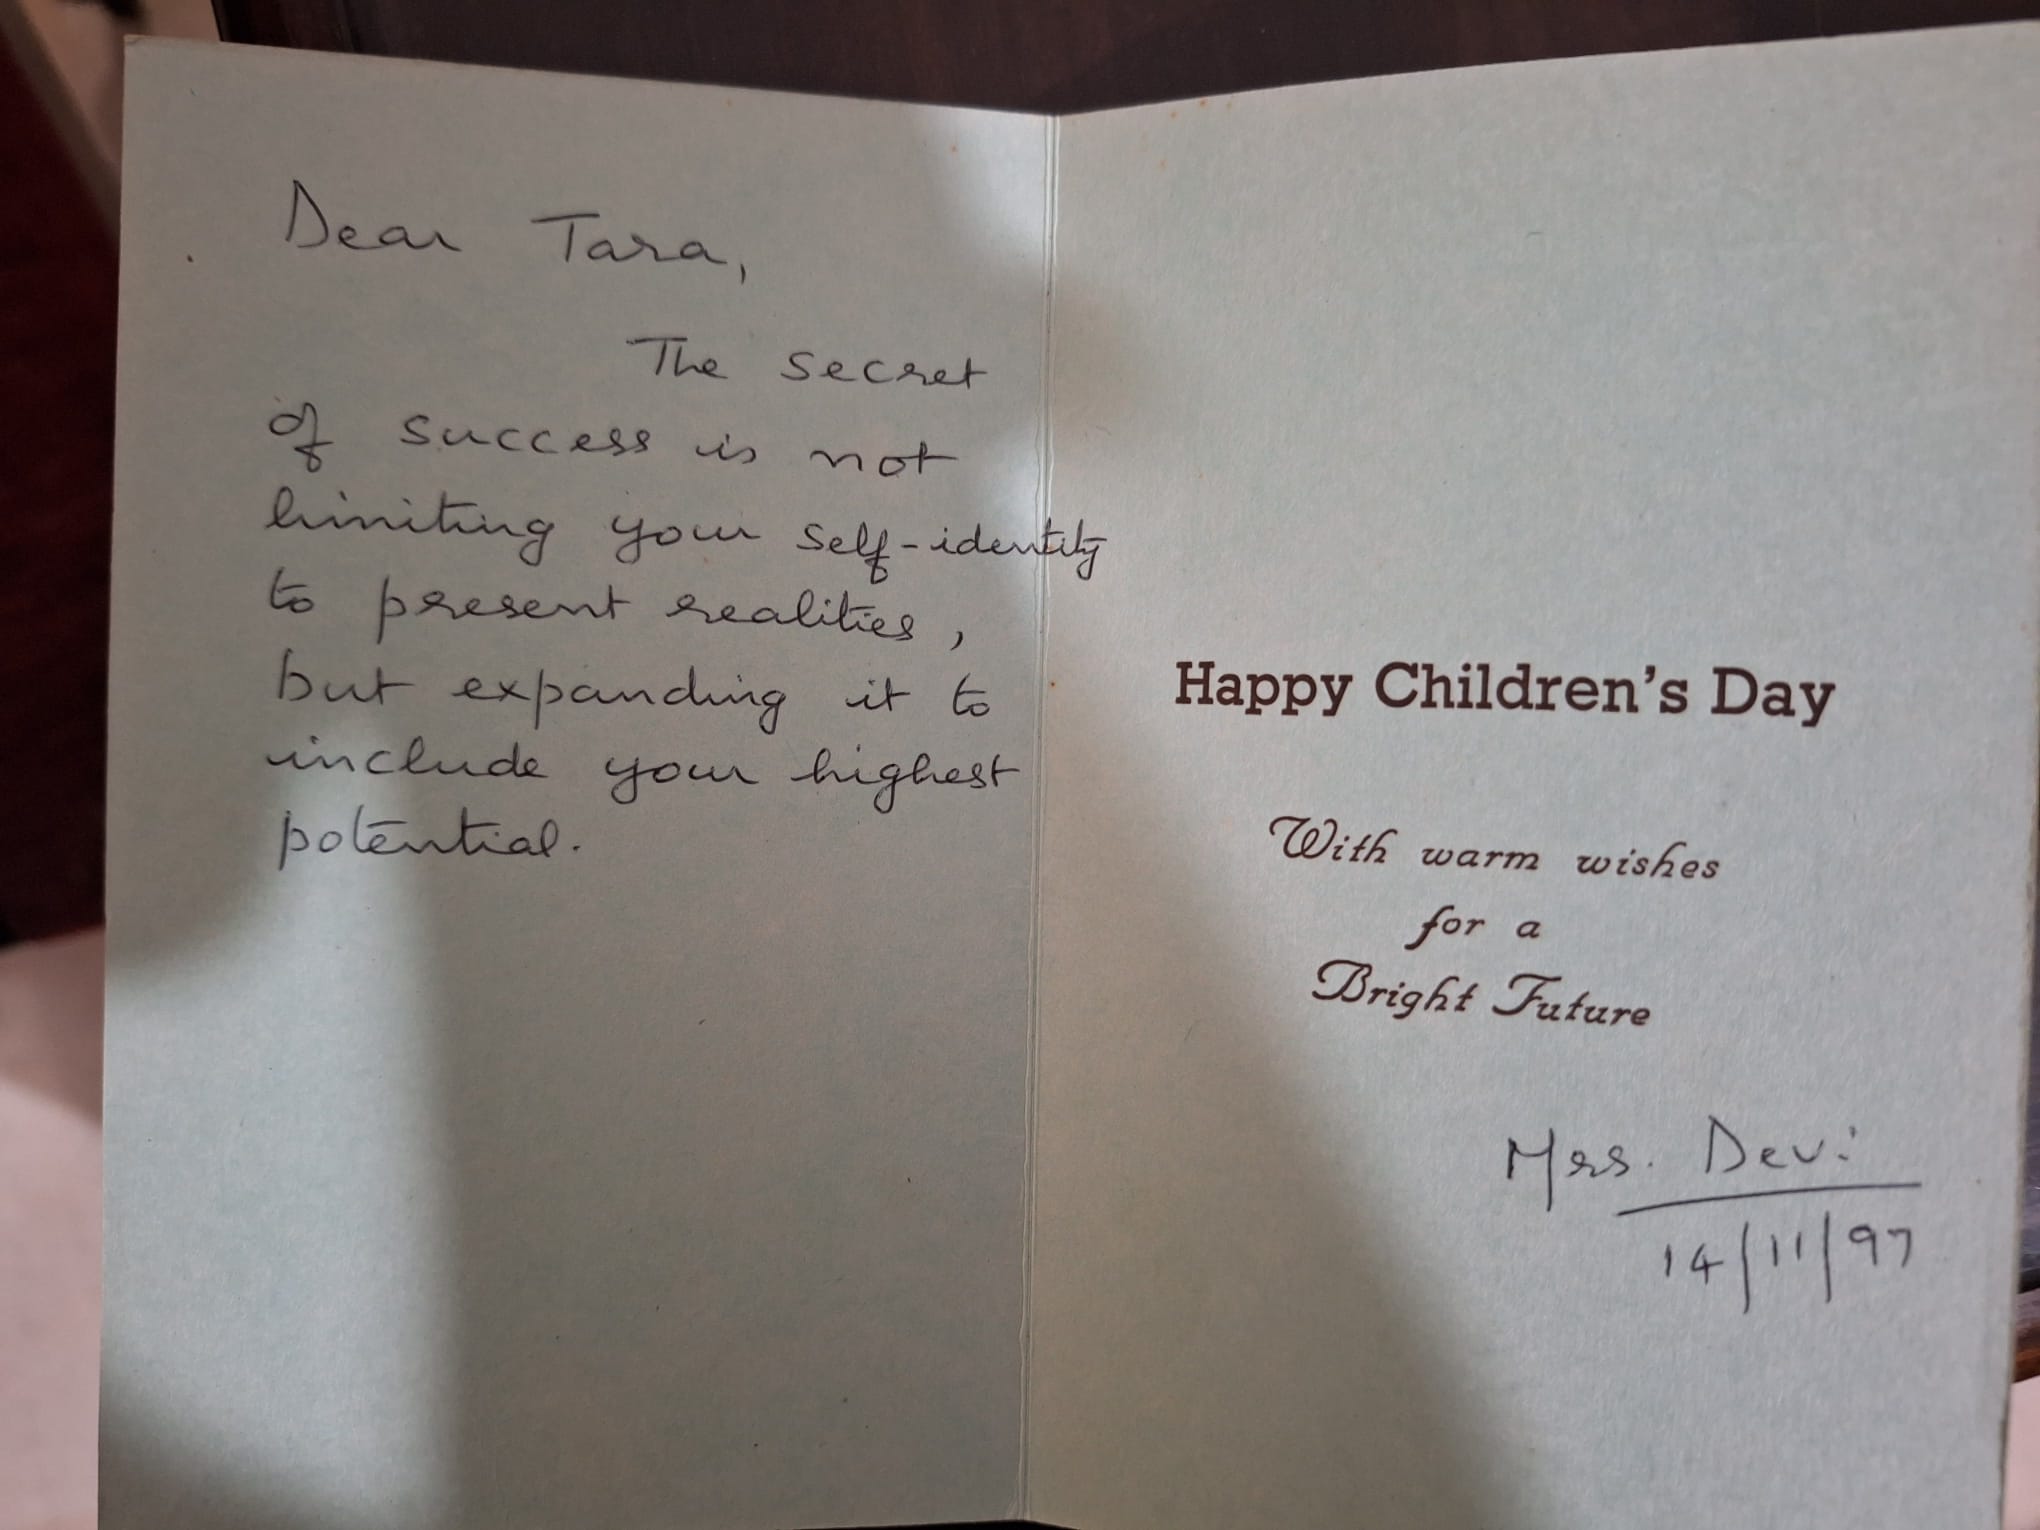 Dear Tara,
The secret
of success is not
limiting your self-identity
to present realities,
but expanding it to
include your highest
potential.
Happy Children's Day
With warm wishes
for a
Bright Future
Mrs. Devi
14/11/97